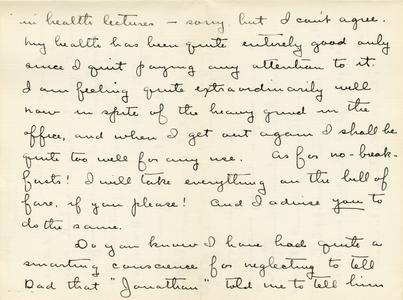 in health lectures – sorry, but I can't agree.
My health has been quite entirely good only
since I quit paying any attention to it.
I am feeling quite extraordinarily well
now in spite of the heavy grind in the
office, and when I get out again I shall be
quite too well for any use. As for no-break-
fasts! I will take everything on the bill of
fare, if you please! And I advise you to
do the same.
Do you know I have had quite a
smarting conscience for neglecting to tell
Dad that "Jonathan" told me to tell him